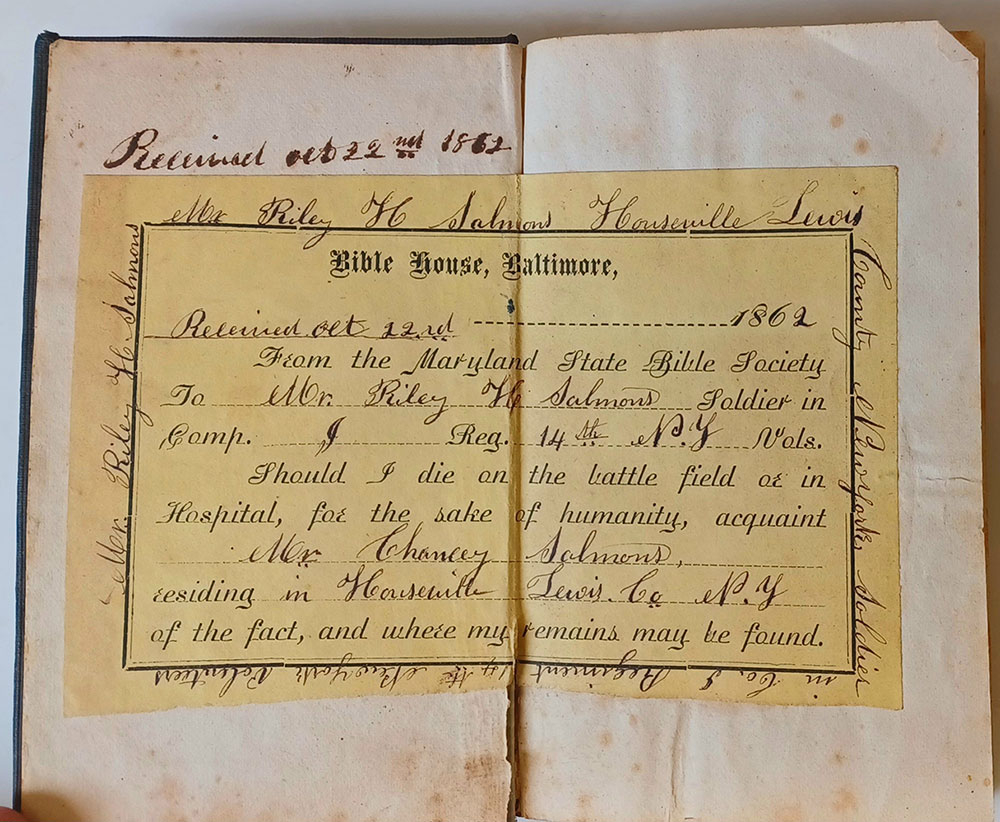 Received oct 22nd 1862
Mr Riley H Salmons Houseville Lewis
County New York, Soldier
in Co. I Regiment 14th New York Volenteers
Mr. Riley H. Salmons
Bible House, Baltimore,
Received Oct 22nd 1862
From the Maryland State Bible Society
To Mr. Riley H Salmons Soldier in
Comp. I Reg. 14th N.Y Vols.
Should I die on the battle field or in
Hospital, for the sake of humanity, acquaint
Mr Chancey Salmons,
residing in Houseville Lewis. Co N.Y
of the fact, and where my remains may be found.